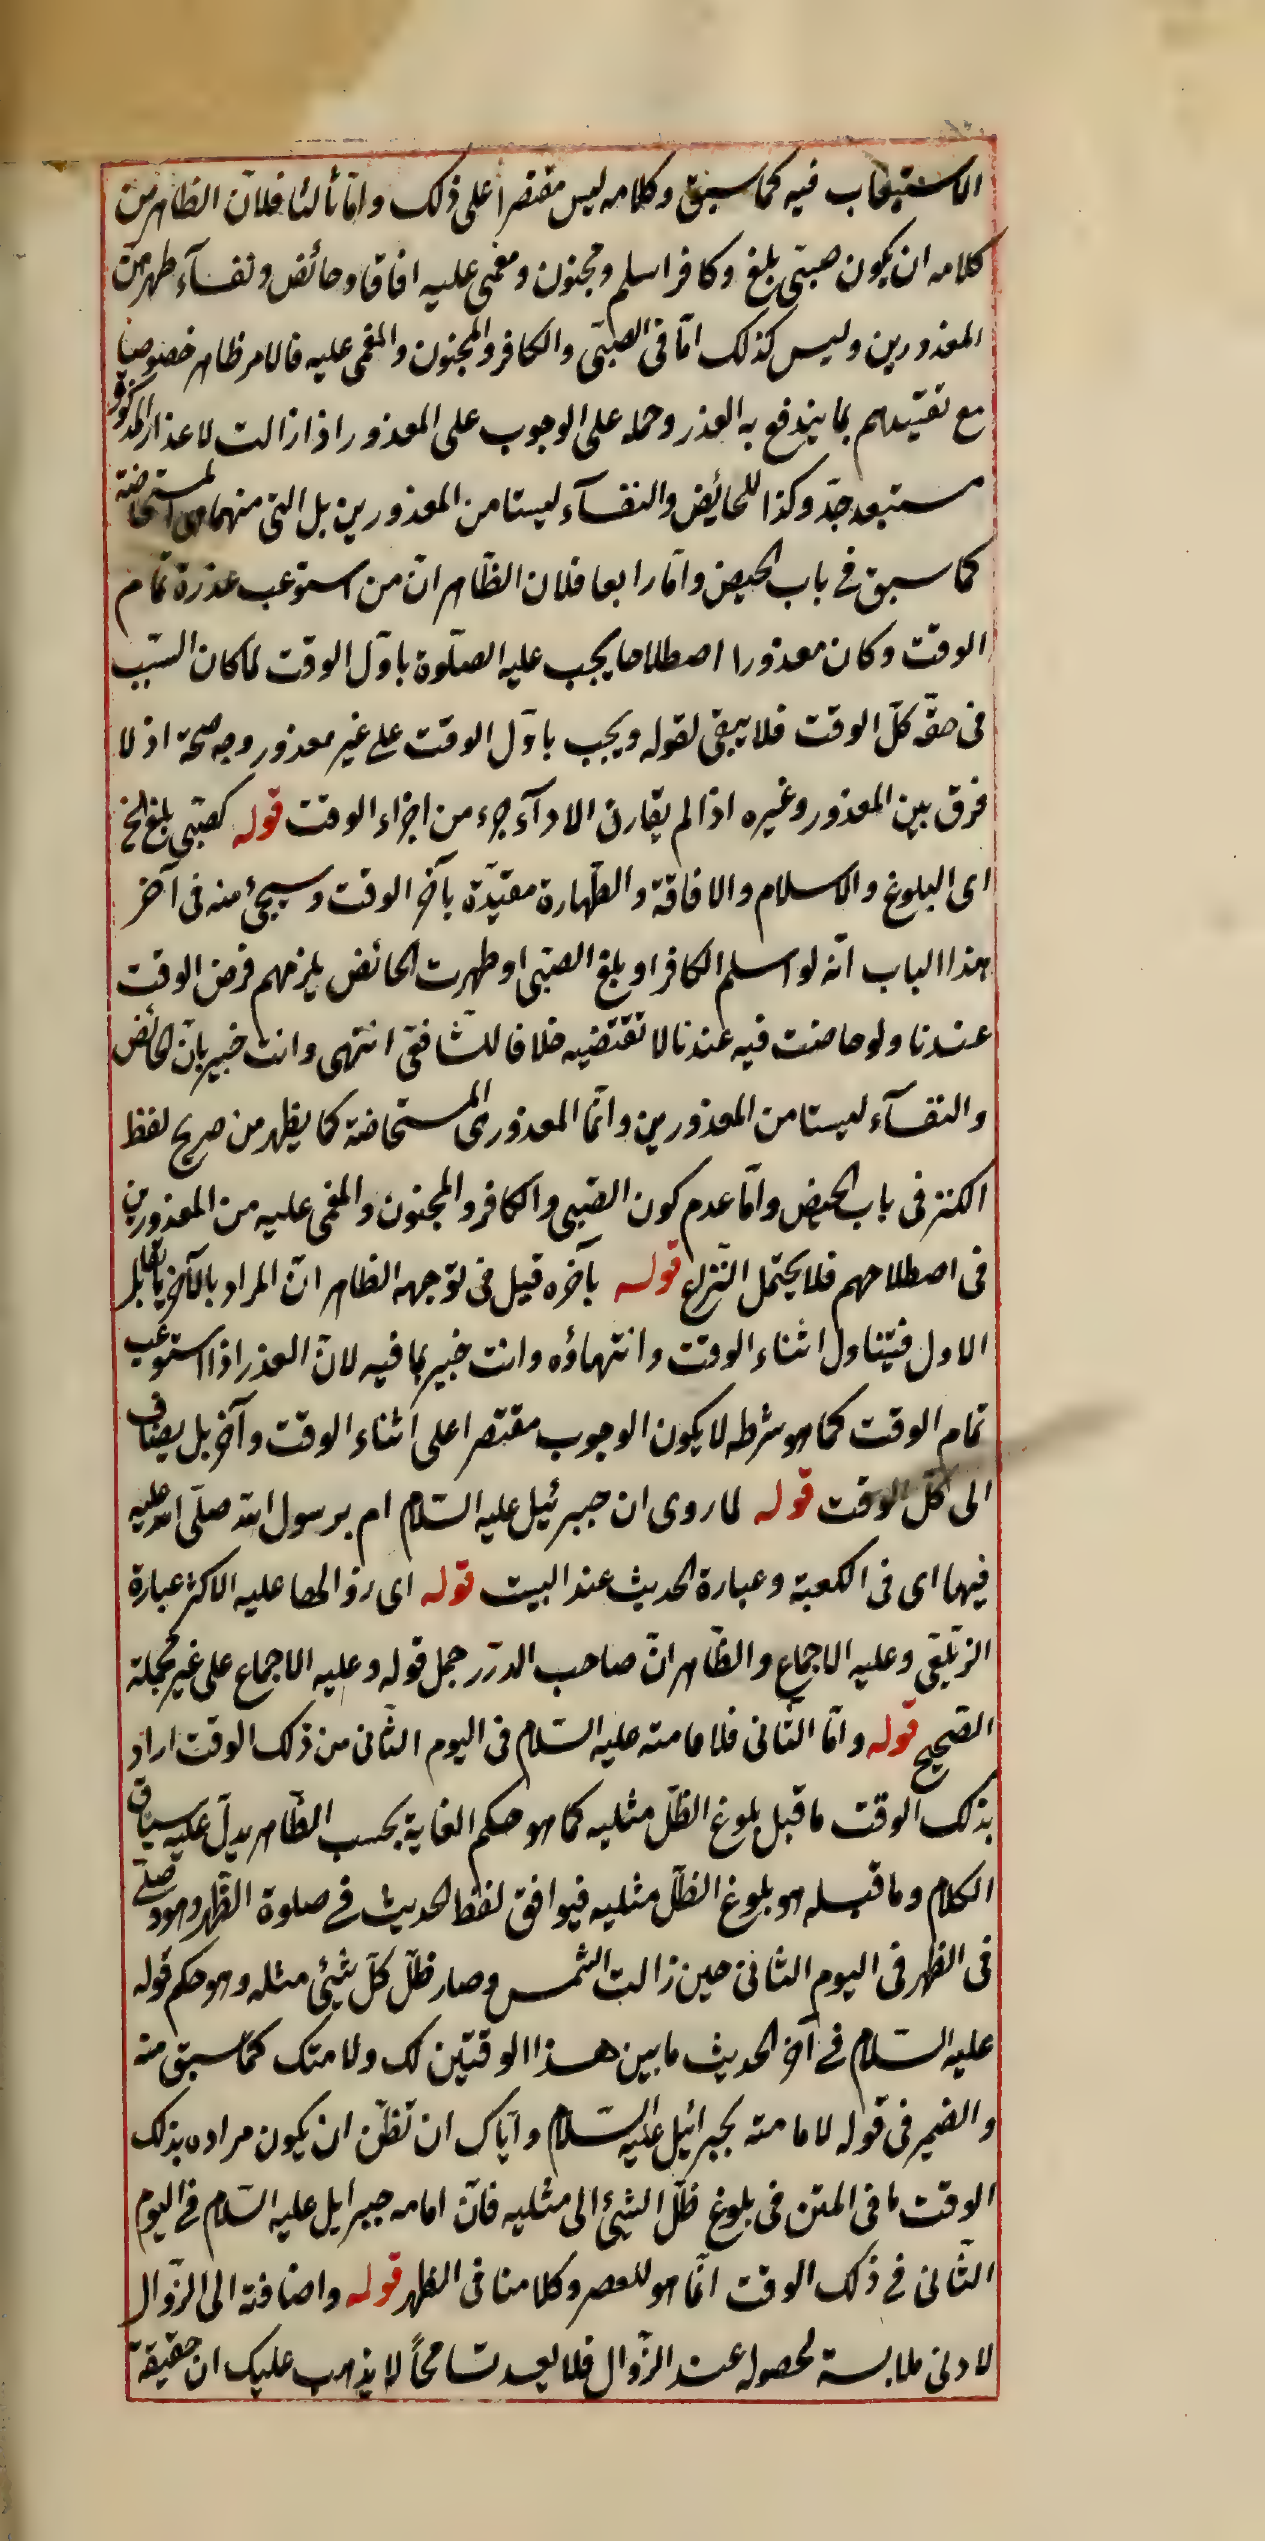 الاستيعاب فيه كما سبق وكلامه ليس مقتصرا على ذلك وامّا ثالثا فلانّ الظاهر من
كلامه ان يكون صبيّ بلغ وكافر اسلم ومجنون ومغمى عليه افاقا وحائض ونفسآء طهرت من
المعذورين وليس كذلك امّا فى الصّبى والكافر والمجنون والمغمى عليه فالامر ظاهر خصوصا
مع تقييدهم بما يندفع به العذر وحمله على الوجوب على المعذور اذا زالت الاعذار المذكورة
مستبعد جدّ وكذا للحائيض والنفسآء ليستا من المعذورين بل التى منهما هى المستحاضة
كما سبق فى باب الحيض وامّا رابعا فلان الظّاهر انّ من استوعب عذره تمام
الوقت وكان معذورا اصطلاحا يجب عليه الصّلوة باوّل الوقت لما كان السّبب
فى حقّه كلّ الوقت فلا يبقى لقوله ويجب باوّل الوقت على غير معذور وجه صحة اذ لا
فرق بين المعذور وغيره اذا لم يقارن الادآء جزء من اجزاء الوقت قوله كصبّى بلغ الخ
اى البلوغ والاسلام والافاقة والطّهارة مقيّدة بآخر الوقت وسيجئ منه فى آخر
هذا الباب انّه لو اسلم الكافر او بلغ الصّبى او طهرت الحائض يلزمهم فرض الوقت
عندنا ولو حاضت فيه عندنا لا تقتضيه خلافا للشّافعّى انتهى وانت خبير بانّ الحائض
والنفسآء ليستا من المعذورين وانّما المعذور هى المستحاضة كما يظهر من صريح لفظ
الكنز فى باب الحيض وامّا عدم كون الصّبى والكافر والمجنون والمغمى عليه من المعذورين
فى اصطلاحهم فلا يحتمل النّزاع قوله بآخره قيل فى توجهه الظاهر انّ المراد بالآخر ما يقابل
الاول فيتناول اثناء الوقت وانتهاؤه وانت خبير بما فيه لانّ العذر اذا استوعب
تمام الوقت كما هو شرطه لا يكون الوجوب مقتصرا على اثناء الوقت وآخر بل يضاف
الى كلّ الوقت قوله لما روى ان جبرئيل عليه السّلام ام برسول الله صلّى الله عليه
فيها اى فى الكعبة وعبارة الحديث عند البيت قوله اى رؤ الحصا عليه الاكثر عبارة
الزّيلعّى وعليه الاجماع والظّاهر انّ صاحب الدرّر حمل قوله وعليه الاجماع على غير محمله
الصّحيح قوله وامّا الثّانى فلامامته عليه السّلام فى اليوم الثّانى من ذلك الوقت اراد
بذلك الوقت ما قبل بلوغ الظّل مثليه كما هو حكم الغاية بحسب الظّاهر يدلّ عليه سياق
الكلام وما قبله هو بلوغ الظّل مثليه فيوافق لفظ الحديث فى صلوة الظّهر وهو وصلّى
فى الظهر فى اليوم الثانى حين زالت الشمس وصار ظلّ كلّ شيئ مثله وهو حكم قوله
عليه السّلام فى آخر الحديث ما بين هذا الوقتين لك ولامتك كما سبق منه
والضمير فى قوله لامامته لجبرائيل عليه السّلام وايّاك ان تظّن ان يكون مراده بذلك
الوقت ما فى المتن فى بلوغ ظلّ الشيئ الى مثليه فانّ امامه جبرايل عليه السّلام فى اليوم
الثّانى فى ذلك الوقت انّما هو للعصر وكلامنا فى الظهر قوله واضافته الى الزّوال
لادنى ملابسة لحصوله عند الزّوال فلا يعد تسامحاً لا يذهب عليك ان حقيقة